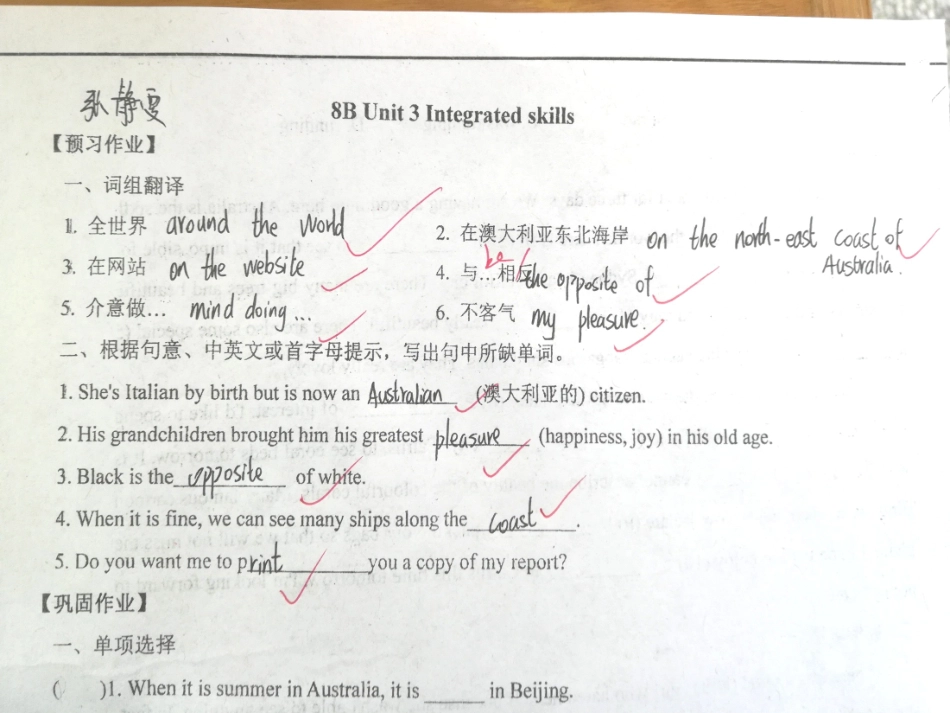 张静雯
8B Unit 3 Integrated skills
【预习作业】
一、词组翻译
1. 全世界 around the world 2. 在澳大利亚东北海岸 on the north-east coast of Australia.
3. 在网站 on the website 4. 与…相反 be the opposite of
5. 介意做… mind doing … 6. 不客气 my pleasure.
二、根据句意、中英文或首字母提示，写出句中所缺单词。
1. She's Italian by birth but is now an Australian (澳大利亚的) citizen.
2. His grandchildren brought him his greatest pleasure (happiness, joy) in his old age.
3. Black is the opposite of white.
4. When it is fine, we can see many ships along the coast.
5. Do you want me to print you a copy of my report?
【巩固作业】
一、单项选择
( )1. When it is summer in Australia, it is ______ in Beijing.